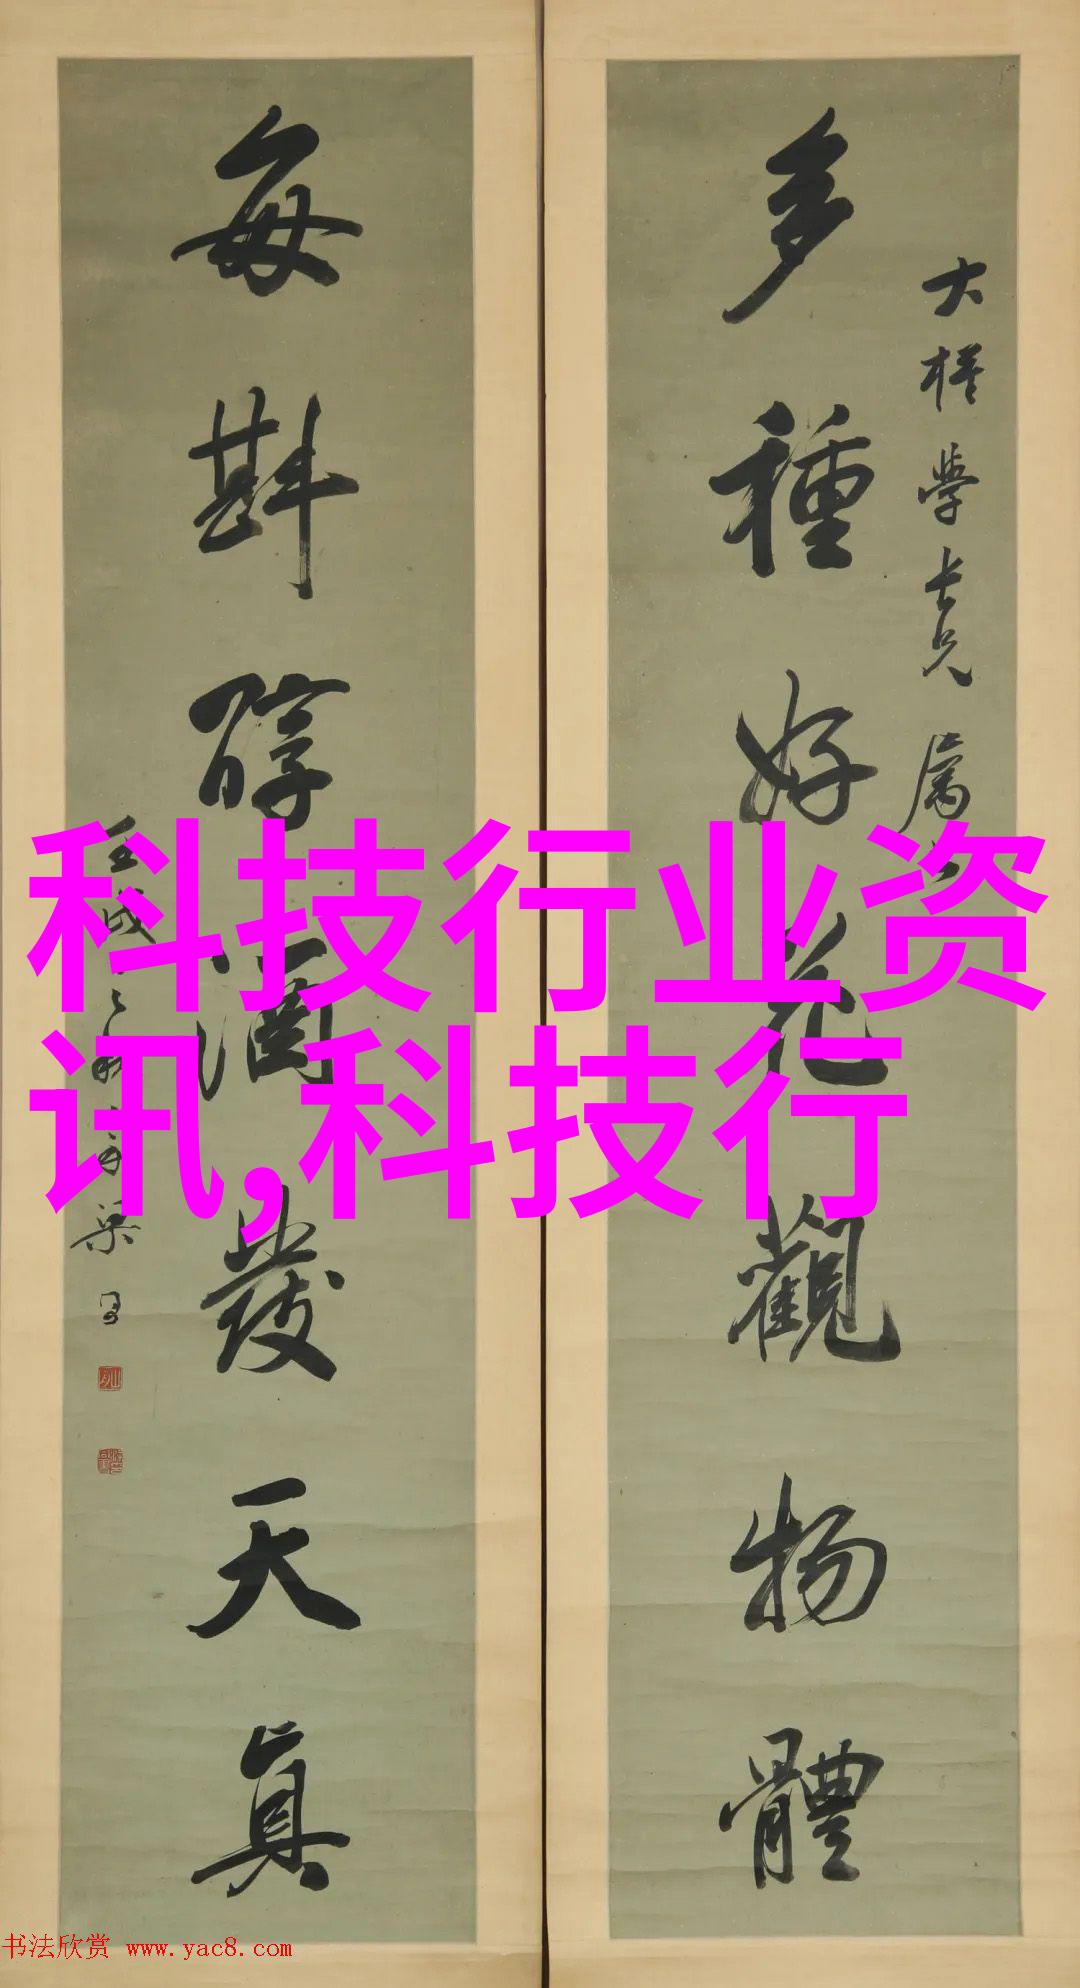 大楳學士兄屬
多種好花觀物體
每斟醇酒發天真
科技行业资
讯,科技行
书法欣赏 www.yac8.com